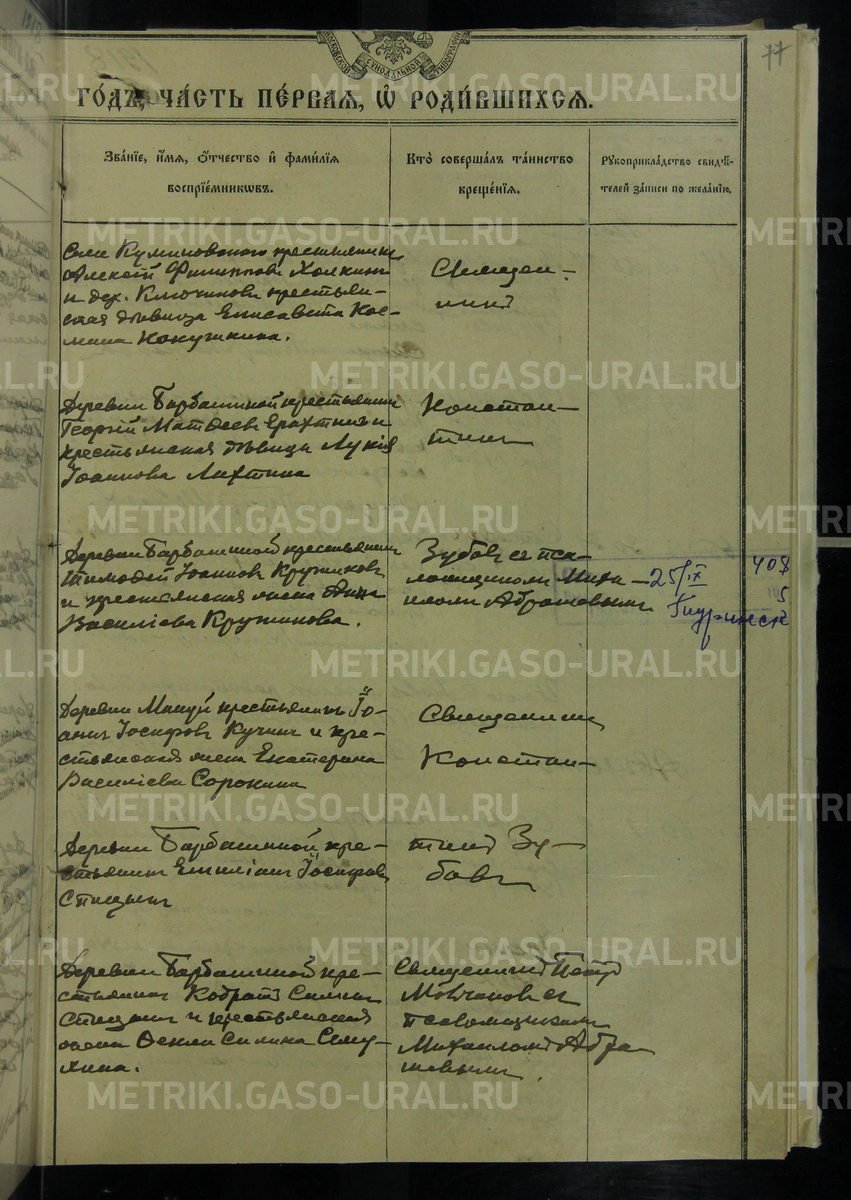 77
МОСКОВСКОЙ СѴНОДАЛЬНОЙ ТИПОГРАФІИ
ГОДЪ, ЧАСТЬ ПЕРВАЯ, Ѡ РОДИВШИХСЯ.
Званіе, имя, отчество и фамилія
воспріемниковъ.
Кто совершалъ таинство
крещенія.
Рукоприкладство свидѣ-
телей записи по желанію.
крестьянинъ
Алексѣй Филипповъ Холкинъ
и дер. Ключиковой крестьян-
ская дѣвица Елисавета Кос-
мина Кокушкина.
Священ-
никъ
Деревни Барбашиной крестьянинъ
Георгій Матѳеевъ и
крестьянская дѣвица Лукія
Іоаннова Лихтина
Констан-
тинъ
Деревни Барбашиной крестьянинъ
Тимофей Іоанновъ Кружиковъ
и крестьянская жена Анна
Василіева Кружикова.
Зубовъ съ пса-
ломщикомъ Миха-
иломъ Абрамовымъ
25/IX
408
5
Деревни крестьянинъ Іо-
аннъ Іосифовъ Кучинъ и кре-
стьянская жена Екатерина
Василіева Сорокина
Священникъ
Констан-
Деревни Барбашиной кре-
стьянинъ Емиліанъ Іосифовъ
Спицынъ
тинъ Зу-
бовъ
Деревни Барбашиной кре-
стьянинъ Кодратъ Силинъ
Спицынъ и крестьянская
жена Ѳекла Силина
Священникъ Петръ
Молчановъ съ
псаломщикомъ
Михаиломъ Абра-
мовымъ.
METRIKI.GASO-URAL.RU